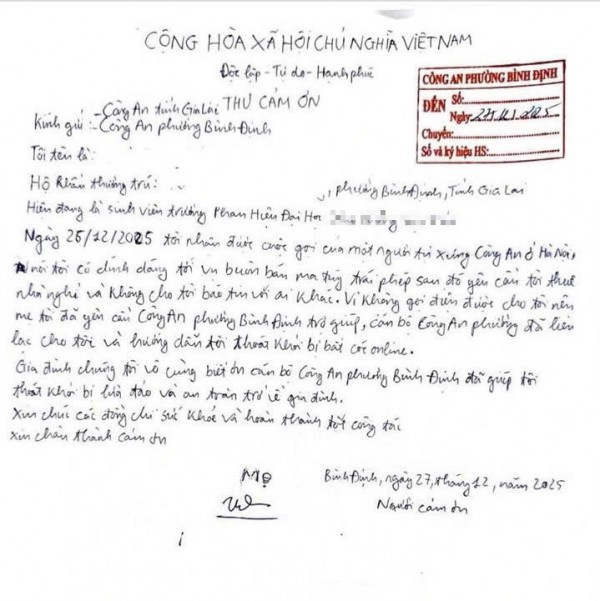 CỘNG HÒA XÃ HỘI CHỦ NGHĨA VIỆT NAM
Độc lập - Tự do - Hạnh phúc
THƯ CẢM ƠN
Kính gửi: - Công An tỉnh Gia Lai
- Công An phường Bình Định
CÔNG AN PHƯỜNG BÌNH ĐỊNH
ĐẾN Số:
Ngày: 27/12/2025
Chuyển:
Số và ký hiệu HS:
Tôi tên là:
Hộ Khẩu thường trú: , phường Bình Định, Tỉnh Gia Lai
Hiện đang là sinh viên trường Phan Hiệu Đại Học
Ngày 26/12/2025 tôi nhận được cuộc gọi của một người tự xưng Công An ở Hà Nội,
nói tôi có dính dáng tới vụ buôn bán ma túy trái phép sau đó yêu cầu tôi thuê
nhà nghỉ và không cho tôi báo tin với ai khác. Vì không gọi điện được cho tôi nên
mẹ tôi đã yêu cầu Công An phường Bình Định trợ giúp, cán bộ Công An phường đã liên
lạc cho tôi và hướng dẫn tôi thoát khỏi bị bắt cóc online.
Gia đình chúng tôi vô cùng biết ơn cán bộ Công An phường Bình Định đã giúp tôi
thoát khỏi bị lừa đảo và an toàn trở về gia đình.
Xin chúc các đồng chí sức khỏe và hoàn thành tốt công tác
xin chân thành cảm ơn
Bình Định, ngày 27, tháng 12, năm 2025
Mẹ
Người cảm ơn